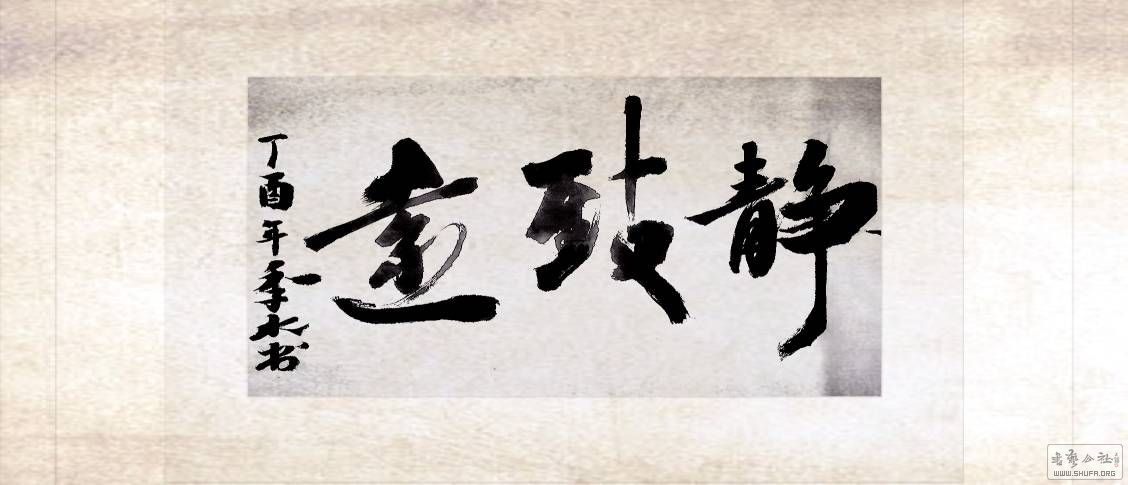 静致遠
丁酉年季水书
書藝公社
WWW.SHUFA.ORG